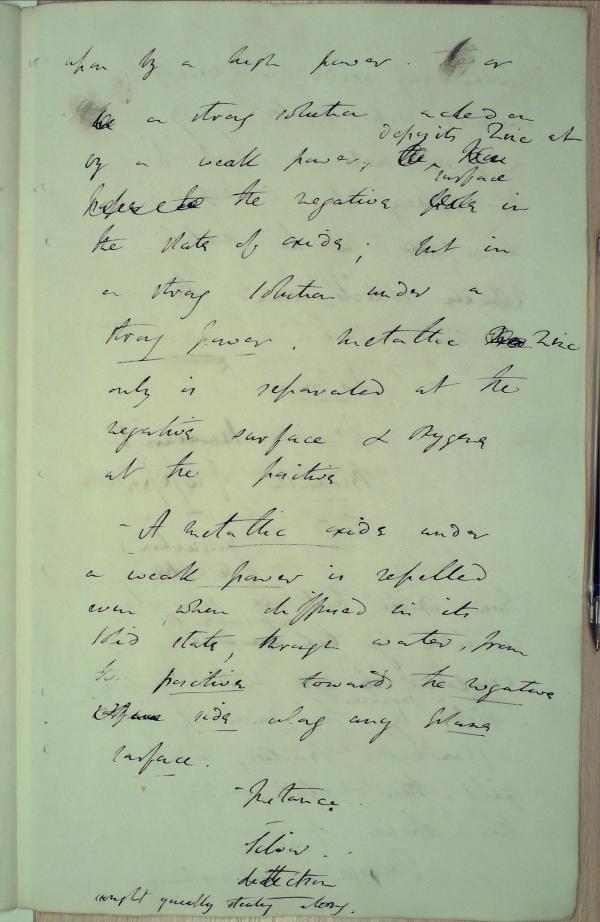 upon by a high power. or
a strong solution acted on
deposits Zinc at
by a weak power,
surface
the negative in
the state of oxide; but in
a strong solution under a
strong power. metallic Zinc
only is separated at the
negative surface & Oxygene
at the positive
- A metallic oxide under
a weak power is repelled
even when diffused in its
solid state, through water, from
the positive towards the negative
side along any
surface.
Instance.
Silver.